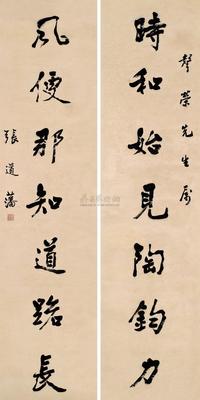 聲榮先生屬
時和始見陶鈞力
風便那知道路長
張道藩